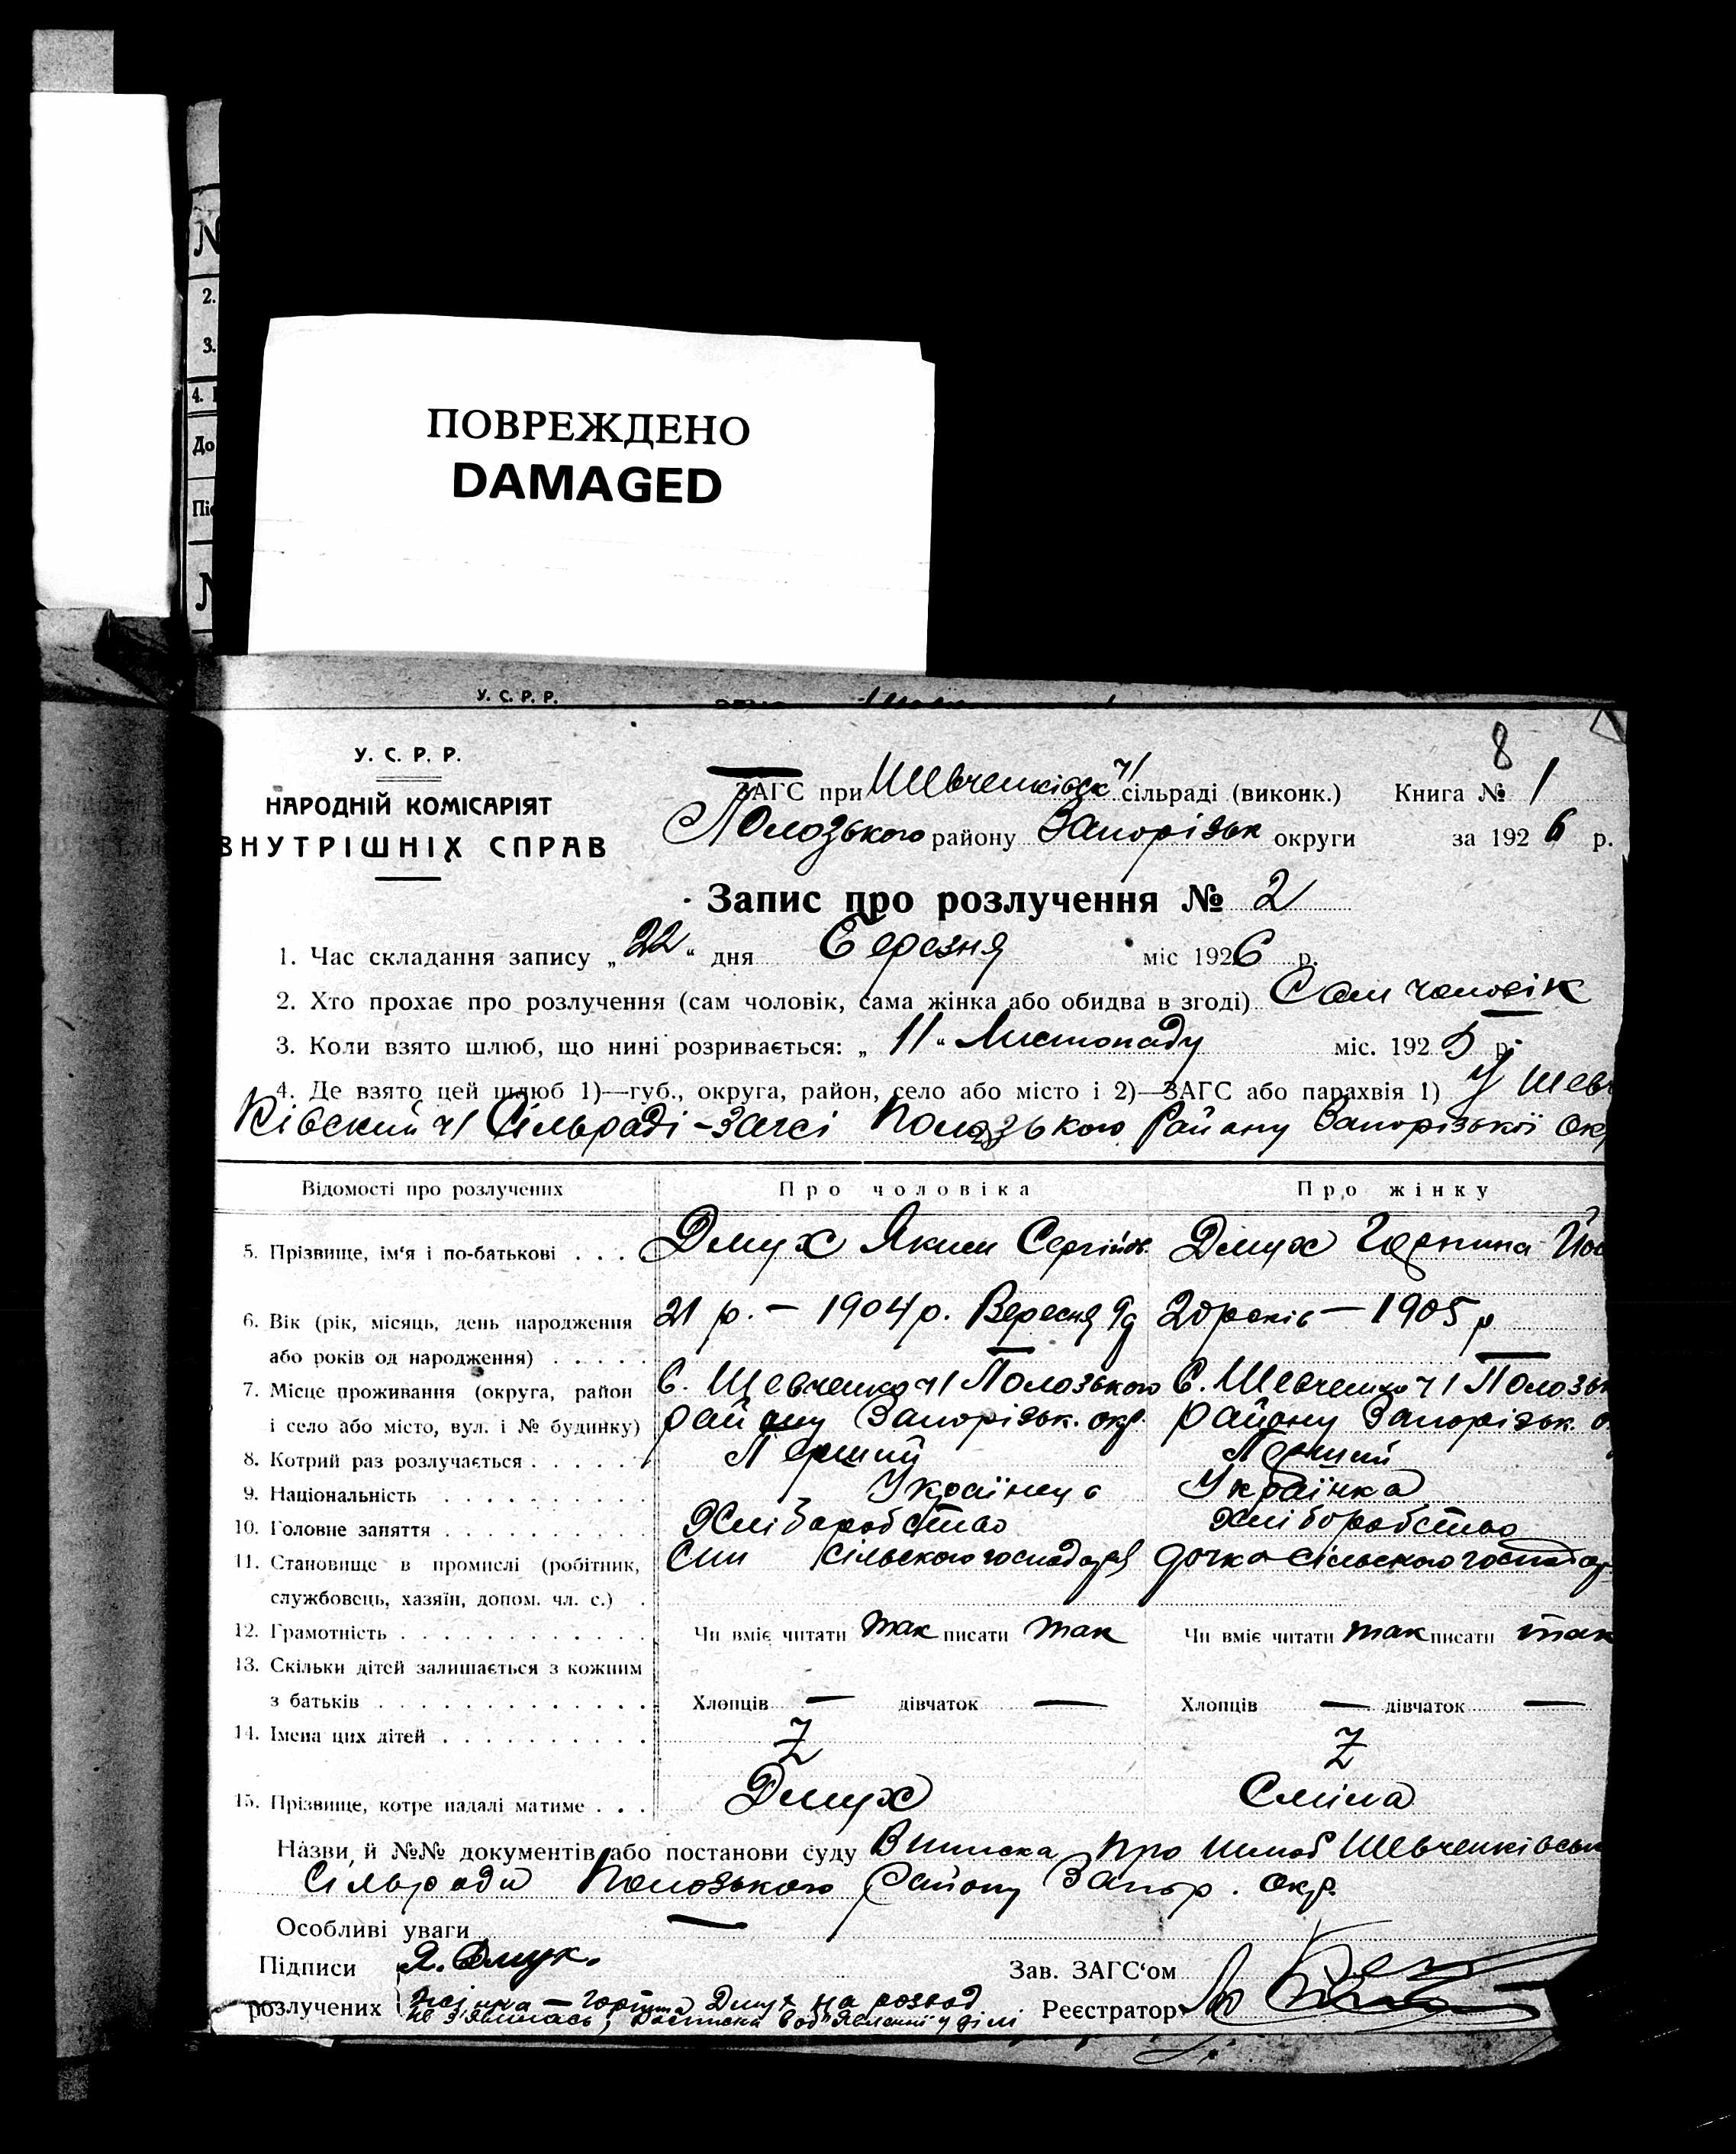 №
2.
3.
4.
До
Піс
ПОВРЕЖДЕНО
DAMAGED
У. С. Р. Р.
8
У. С. Р. Р.
НАРОДНІЙ КОМІСАРІЯТ
ВНУТРІШНІХ СПРАВ
ЗАГС при Шевченківск ч1 сільраді (виконк.) Книга № 1
Полозького району Запорізьк округи за 1926 р.
Запис про розлучення № 2
1. Час складання запису „22“ дня Березня міс 1926 р.
2. Хто прохає про розлучення (сам чоловік, сама жінка або обидва в згоді) Сам чоловік
3. Коли взято шлюб, що нині розривається: „11“ Листопаду міс. 1925 р.
4. Де взято цей шлюб 1)—губ., округа, район, село або місто і 2)—ЗАГС або парахвія 1) У Шевч
ківский ч1 Сільраді-загсі Полозького Району Запорізької Окр
Відомості про розлучених Про чоловіка Про жінку
5. Прізвище, ім‘я і по-батькові . . . Дмух Яким Сергійов. Дмух Горпина Йос
6. Вік (рік, місяць, день народження 21 р. — 1904 р. Вересня 9д 20 років — 1905 р
або років од народження) . . . . .
7. Місце проживання (округа, район С. Шевченко ч1 Полозького С. Шевченко ч1 Полозьк
і село або місто, вул. і № будинку) району Запорізьк. окр. району Запорізьк. о
8. Котрий раз розлучається . . . . . . Перший Перший
9. Національність . . . . . . . . . . Українець Українка
10. Головне заняття . . . . . . . . . . Хліборобство Хліборобство
11. Становище в промислі (робітник, Син сільского господаря дочка сільского господар
службовець, хазяїн, допом. чл. с.) .
12. Грамотність . . . . . . . . . . . . Чи вміє читати так писати так Чи вміє читати так писати так
13. Скільки дітей залишається з кожним
з батьків . . . . . . . . . . . . . Хлопців — дівчаток — Хлопців — дівчаток —
14. Імена цих дітей . . . . . . . . . . Z Z
15. Прізвище, котре надалі матиме . . . Дмух Сліпа
Назви й №№ документів або постанови суду Виписка про шлюб Шевченківськ
Сільради Полозького району Запор. окр.
Особливі уваги —
Підписи Я. Дмух. Зав. ЗАГС‘ом
розлучених жінка — Горпина Дмух на розвод Реєстратор
не зявилась, Росписка в об'явленнї у ділі